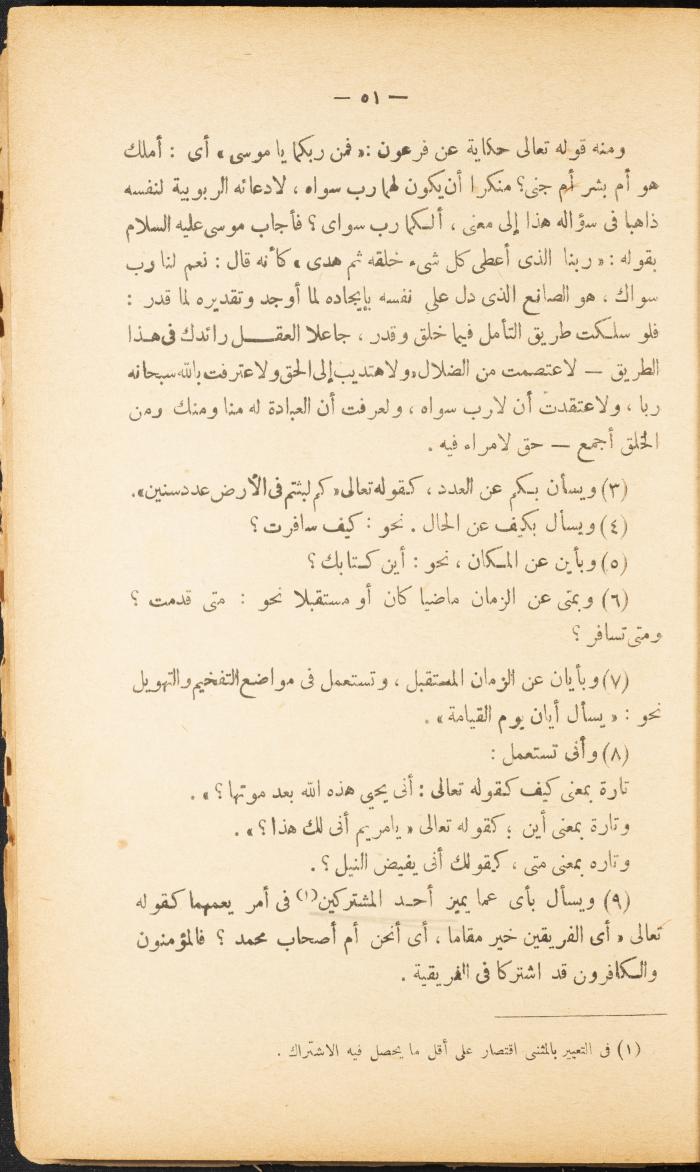 — ٥١ —
ومنه قوله تعالى حكاية عن فرعون : « فمن ربكما يا موسى » أى : أملك
هو أم بشر أم جنى؟ منكرا أن يكون لهما رب سواه ، لادعائه الربوبية لنفسه
ذاهبا فى سؤاله هذا إلى معنى ، ألكما رب سواى ؟ فأجاب موسى عليه السلام
بقوله : « ربنا الذى أعطى كل شىء خلقه ثم هدى » كأنه قال : نعم لنا رب
سواك ، هو الصانع الذى دل على نفسه بإيجاده لما أوجد وتقديره لما قدر :
فلو سلكت طريق التأمل فيما خلق وقدر ، جاعلا العقل رائدك فى هذا
الطريق — لاعتصمت من الضلال، ولاهتديت إلى الحق ولاعترفت بالله سبحانه
ربا ، ولاعتقدت أن لا رب سواه ، ولعرفت أن العبادة له منا ومنك ومن
الخلق أجمع — حق لا مراء فيه .
(٣) ويسأن بكم عن العدد ، كقوله تعالى « كم لبثتم فى الأرض عدد سنين ».
(٤) ويسأل بكيف عن الحال . نحو : كيف سافرت ؟
(٥) وبأين عن المكان ، نحو : أين كتابك ؟
(٦) وبمتى عن الزمان ماضيا كان أو مستقبلا نحو : متى قدمت ؟
ومتى تسافر ؟
(٧) وبأيان عن الزمان المستقبل ، وتستعمل فى مواضع التفخيم والتهويل
نحو : « يسأل أيان يوم القيامة » .
(٨) وأنى تستعمل :
تارة بمعنى كيف كقوله تعالى : أنى يحيي هذه الله بعد موتها ؟ » .
وتارة بمعنى أين ؛ كقوله تعالى « يامريم أنى لك هذا ؟ » .
وتاره بمعنى متى ، كقولك أنى يفيض النيل ؟ .
(٩) ويسأل بأى عما يميز أحد المشتركين(١) فى أمر يعمهما كقوله
تعالى « أى الفريقين خير مقاما ، أى أنحن أم أصحاب محمد ؟ فالمؤمنون
والكافرون قد اشتركا فى الفريقية .
(١) فى التعبير بالمثنى اقتصار على أقل ما يحصل فيه الاشتراك .